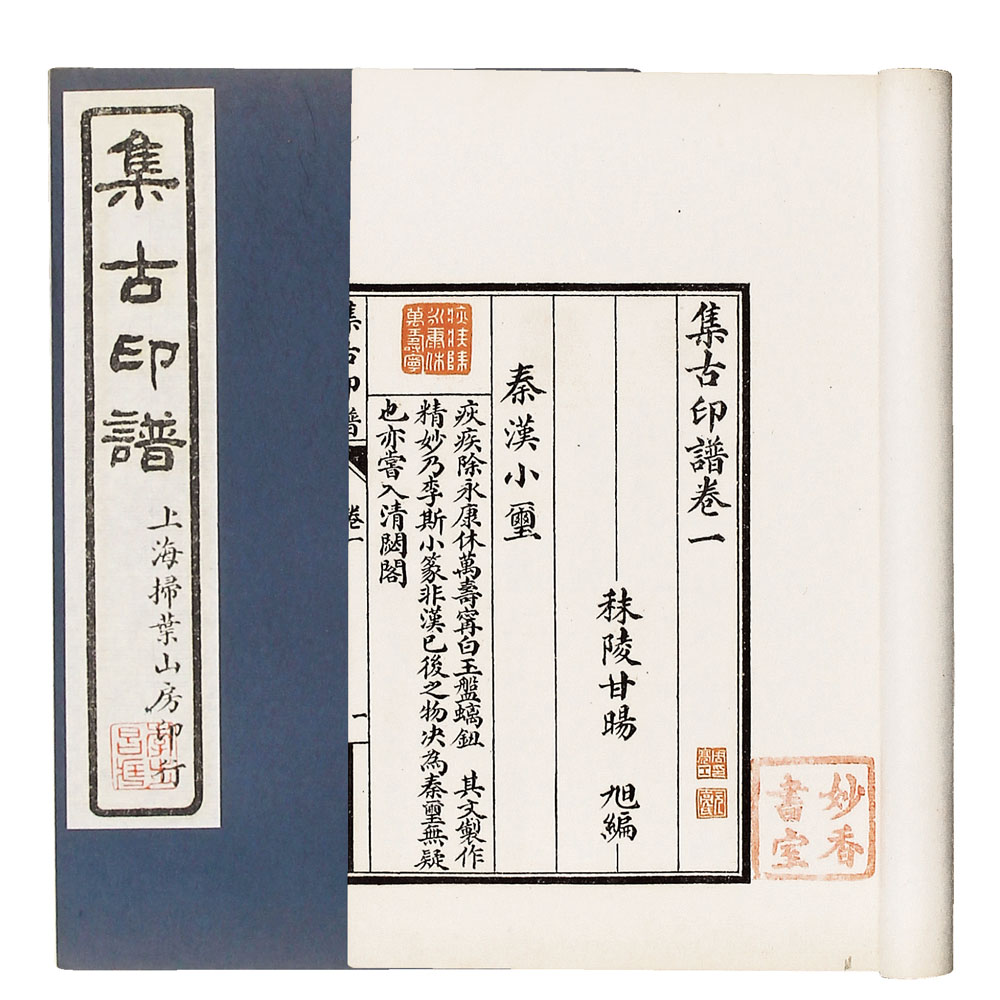 集古印譜
上海掃葉山房印行
集古印譜卷一
秣陵甘暘 旭編
妙香
書室
秦漢小璽
疢疾除
永康休
萬壽寧
疢疾除永康休萬壽寗白玉盤螭鈕 其文製作
精妙乃李斯小篆非漢已後之物决為秦璽無疑
也亦嘗入清閟閣
集古印譜 卷一 一